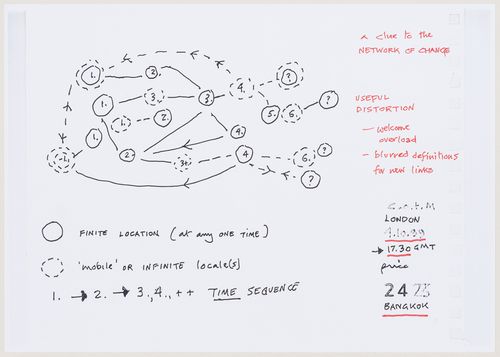 a clue to the
NETWORK OF CHANGE
1.
2.
?
1.
3.
3.
4.
1.
2.
5.
6.
?
1.
-1.
2.
4.
3+
4
6.
?
?
USEFUL
DISTORTION
— welcome
overload
— blurred definitions
for new links
FINITE LOCATION (at any one time)
'mobile' OR INFINITE locale(s)
1. → 2. → 3., 4., ++ TIME SEQUENCE
LONDON
→ 17.30 GMT
price
BANGKOK